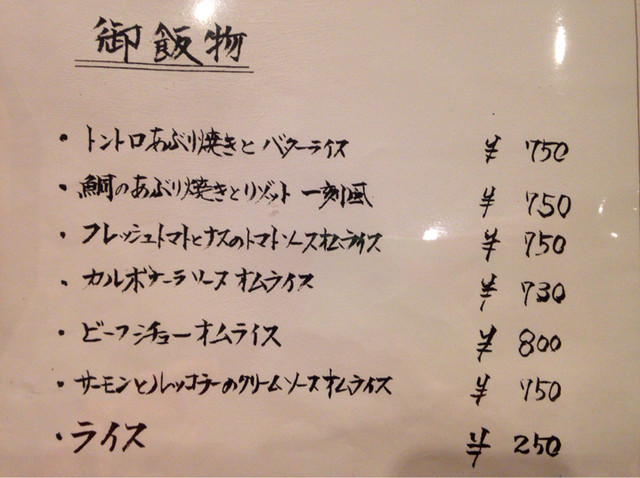 御飯物
・トントロあぶり焼きと バターライス ¥ 750
・鯛のあぶり焼きとリゾット 一刻風 ¥ 750
・フレッシュトマトとナスのトマトソースオムライス ¥ 750
・カルボナーラソース オムライス ¥ 730
・ビーフシチューオムライス ¥ 800
・サーモンとルッコラーのクリームソースオムライス ¥ 750
・ライス ¥ 250